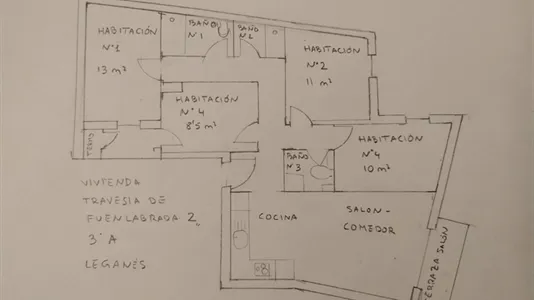 HABITACIÓN
Nº1
13 m²
BAÑO
Nº1
BAÑO
Nº2
HABITACIÓN
Nº2
11 m²
HABITACIÓN
Nº4
8'5 m²
HABITACIÓN
Nº4
10 m²
BAÑO
Nº3
COCINA
SALON-
COMEDOR
TERRAZA SALÓN
VIVIENDA
TRAVESIA DE
FUENLABRADA 2,
3º A
LEGANÉS